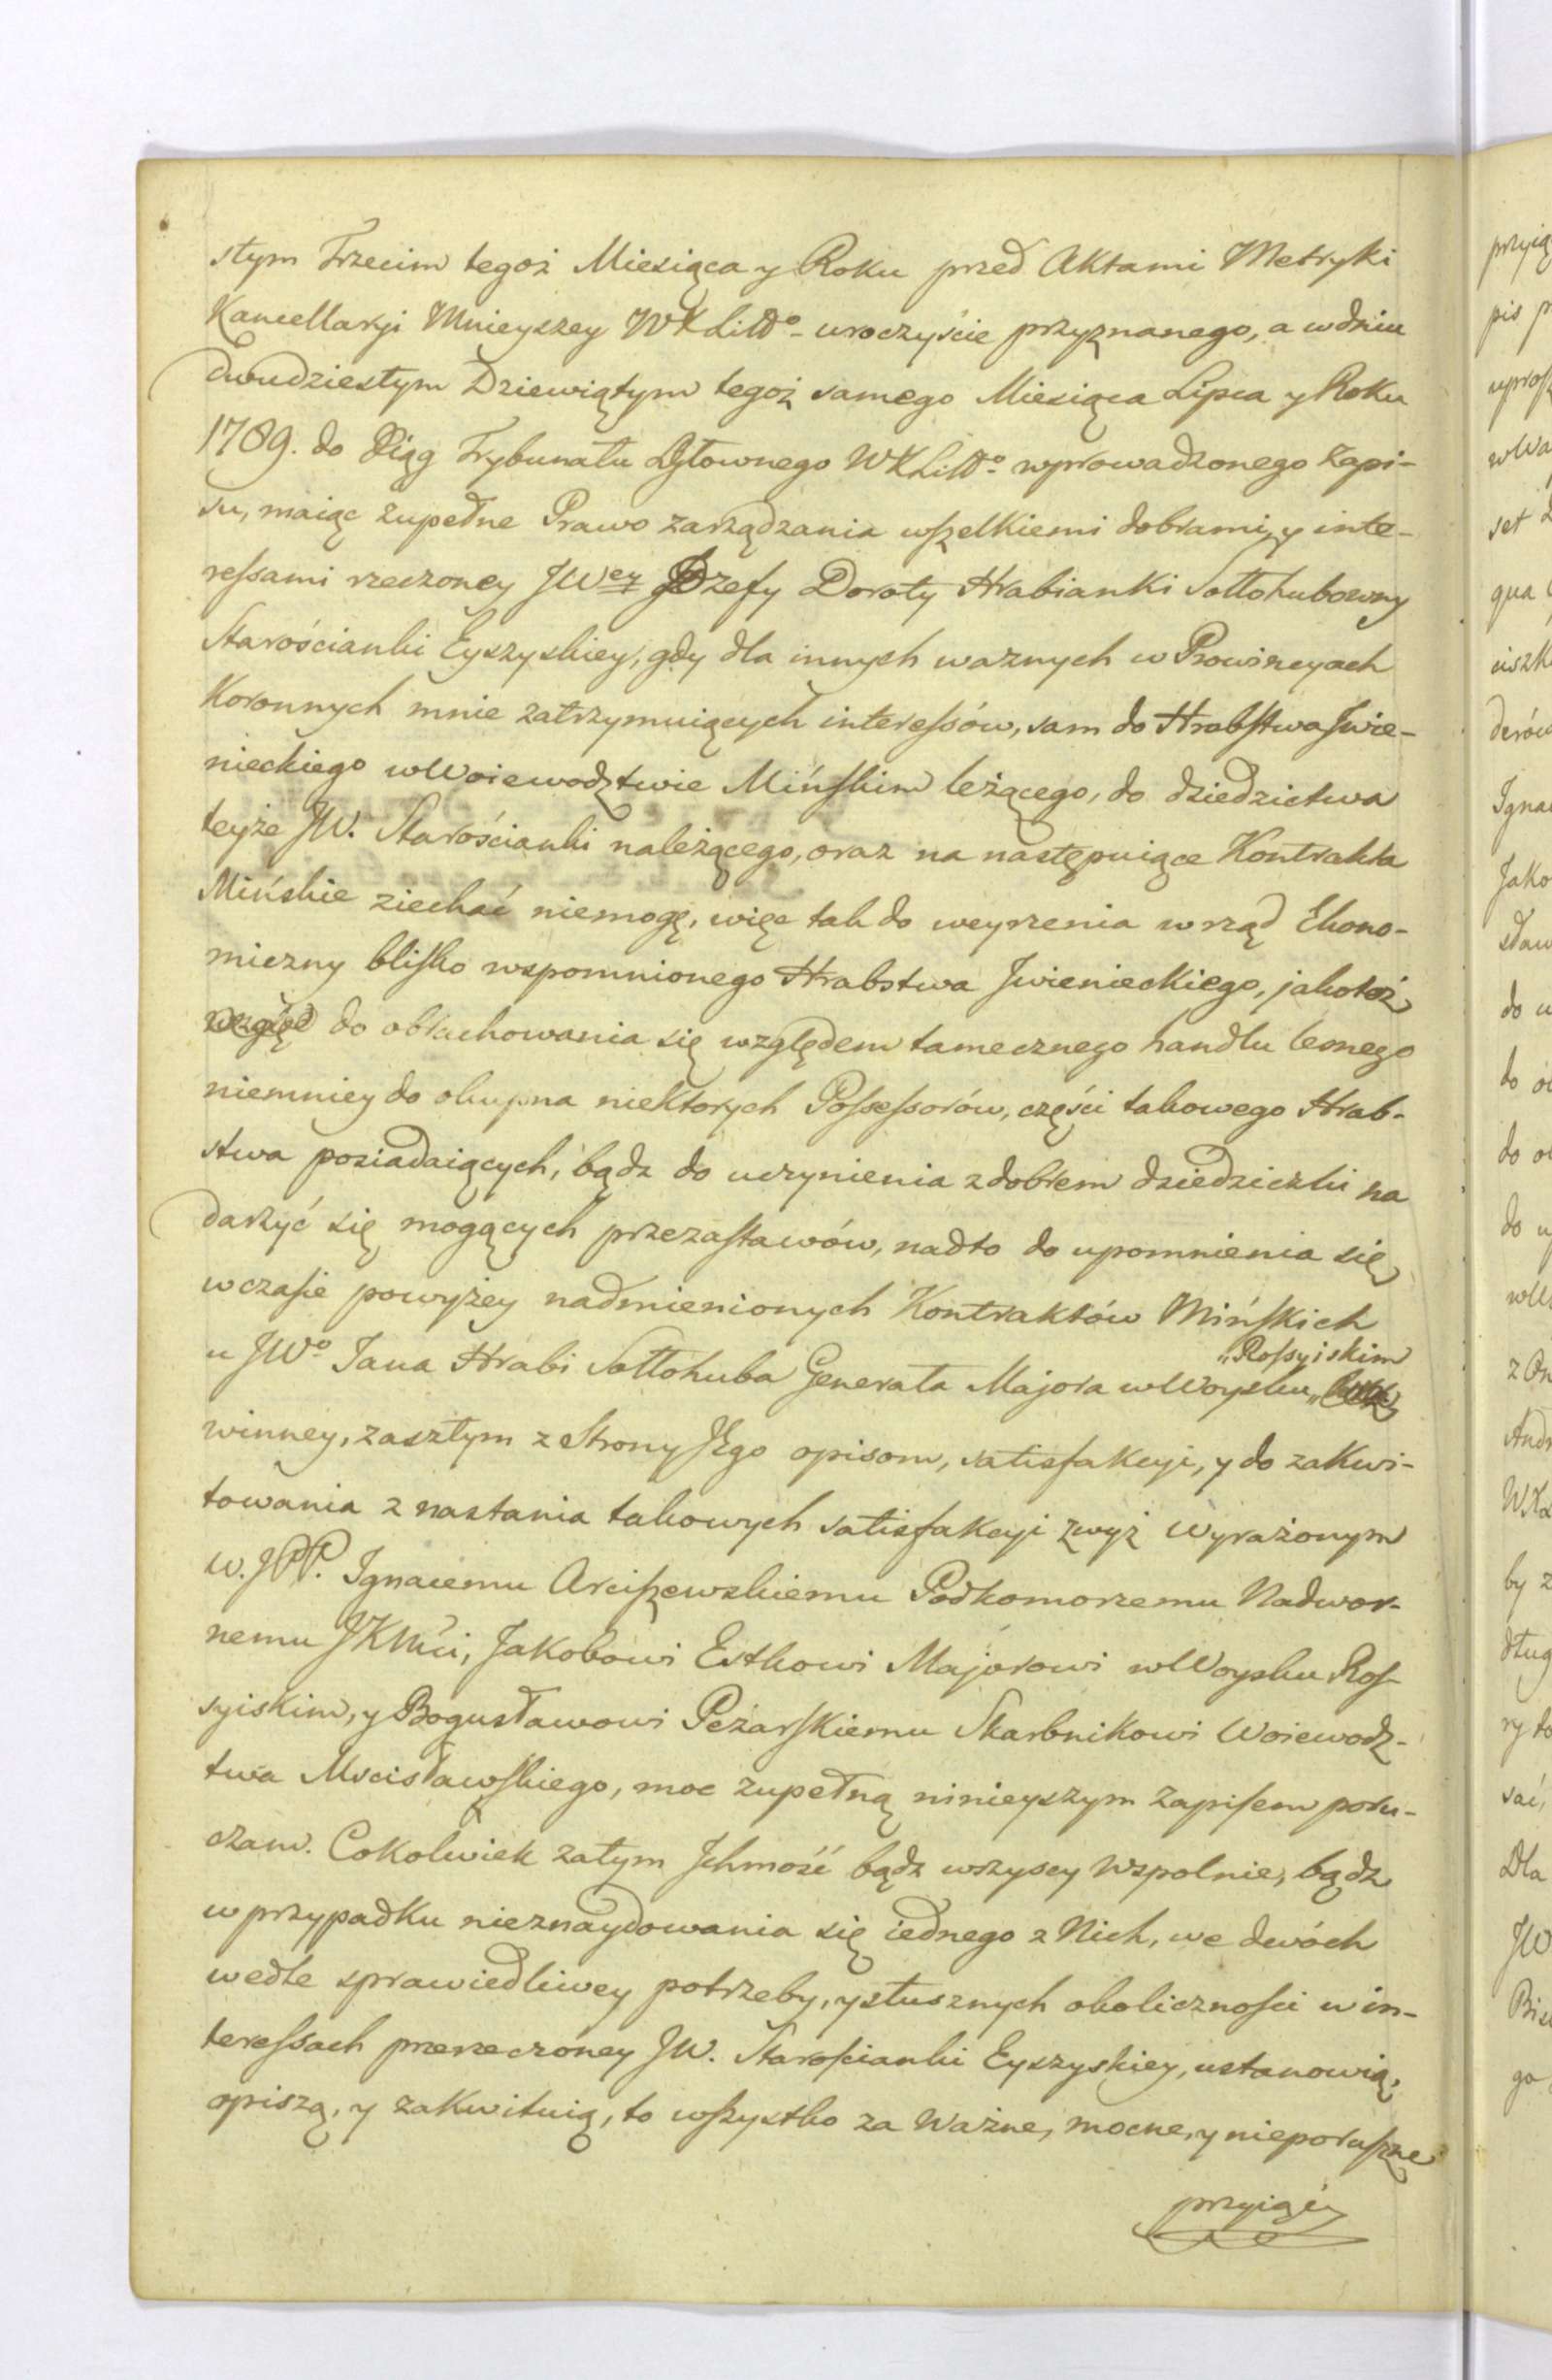 stym Trzecim tegoż Miesiąca y Roku przed Aktami Metryki
Kancellaryi Mnieyszey WXLitto- uroczyście przyznanego, a w dniu
dwudziestym Dziewiątym tegoż samego Miesiąca Lipca y Roku
1789. do Xiąg Trybunału Głownego WXLitto wprowadzonego Zapi-
su, maiąc zupełne Prawo zarządzania wszelkiemi dobrami, y inte-
ressami rzeczoney JWey Józefy Doroty Hrabianki Sołłohubowny
Starościanki Eyszyskiey, gdy dla innych waznych w Prowincyach
Koronnych mnie zatrzymuiących interessów, sam do Hrabstwa Iwie-
nieckiego w Woiewodztwie Mińskim leżącego, do dziedzictwa
teyże JW. Starościanki należącego, oraz na następuiące Kontrakta
Mińskie ziechać niemogę, więc tak do weyrzenia w rząd Ekono-
miczny blisko wspomnionego Hrabstwa Iwienieckiego, jakoteż
do obrachowania się względem tamecznego handlu lesnego
niemniey do okupna niektorych Possessorów, części takowego Hrab-
stwa posiadaiących, bądz do uczynienia z dobrem dziedziczki na
darzyć się mogących przezastawów, nadto do upomnienia się
w czasie powyżey nadmienionych Kontraktów Mińskich
"Rossyiskim
u JWo Jana Hrabi Sołłohuba Generała Majora w Woysku"
winney, zaszłym z Strony Jego opisom, satisfakcyi, y do zakwi-
towania z nastania takowych satisfakcyi zwyż wyrażonym
W.JPP. Ignacemu Arciszewskiemu Podkomorzemu Nadwor-
nemu JKMci, Jakobowi Estkowi Majorowi w Woysku Ros-
syiskim, y Bogusławowi Peżarskiemu Skarbnikowi Woiewodz-
twa Mscisławskiego, moc zupełną ninieyszym Zapisem poru-
czam. Cokolwiek zatym Ichmość bądz wszyscy wspolnie, bądz
w przypadku nieznaydowania się iednego z Nich, we dwóch
wedle sprawiedliwey potrzeby, y słusznych okoliczności w in-
teressach przerzeczoney JW. Starościanki Eyszyskiey, ustanowią,
opiszą, y zakwituią, to wszystko za Ważne, mocne, y nieporuszne
przyiąć